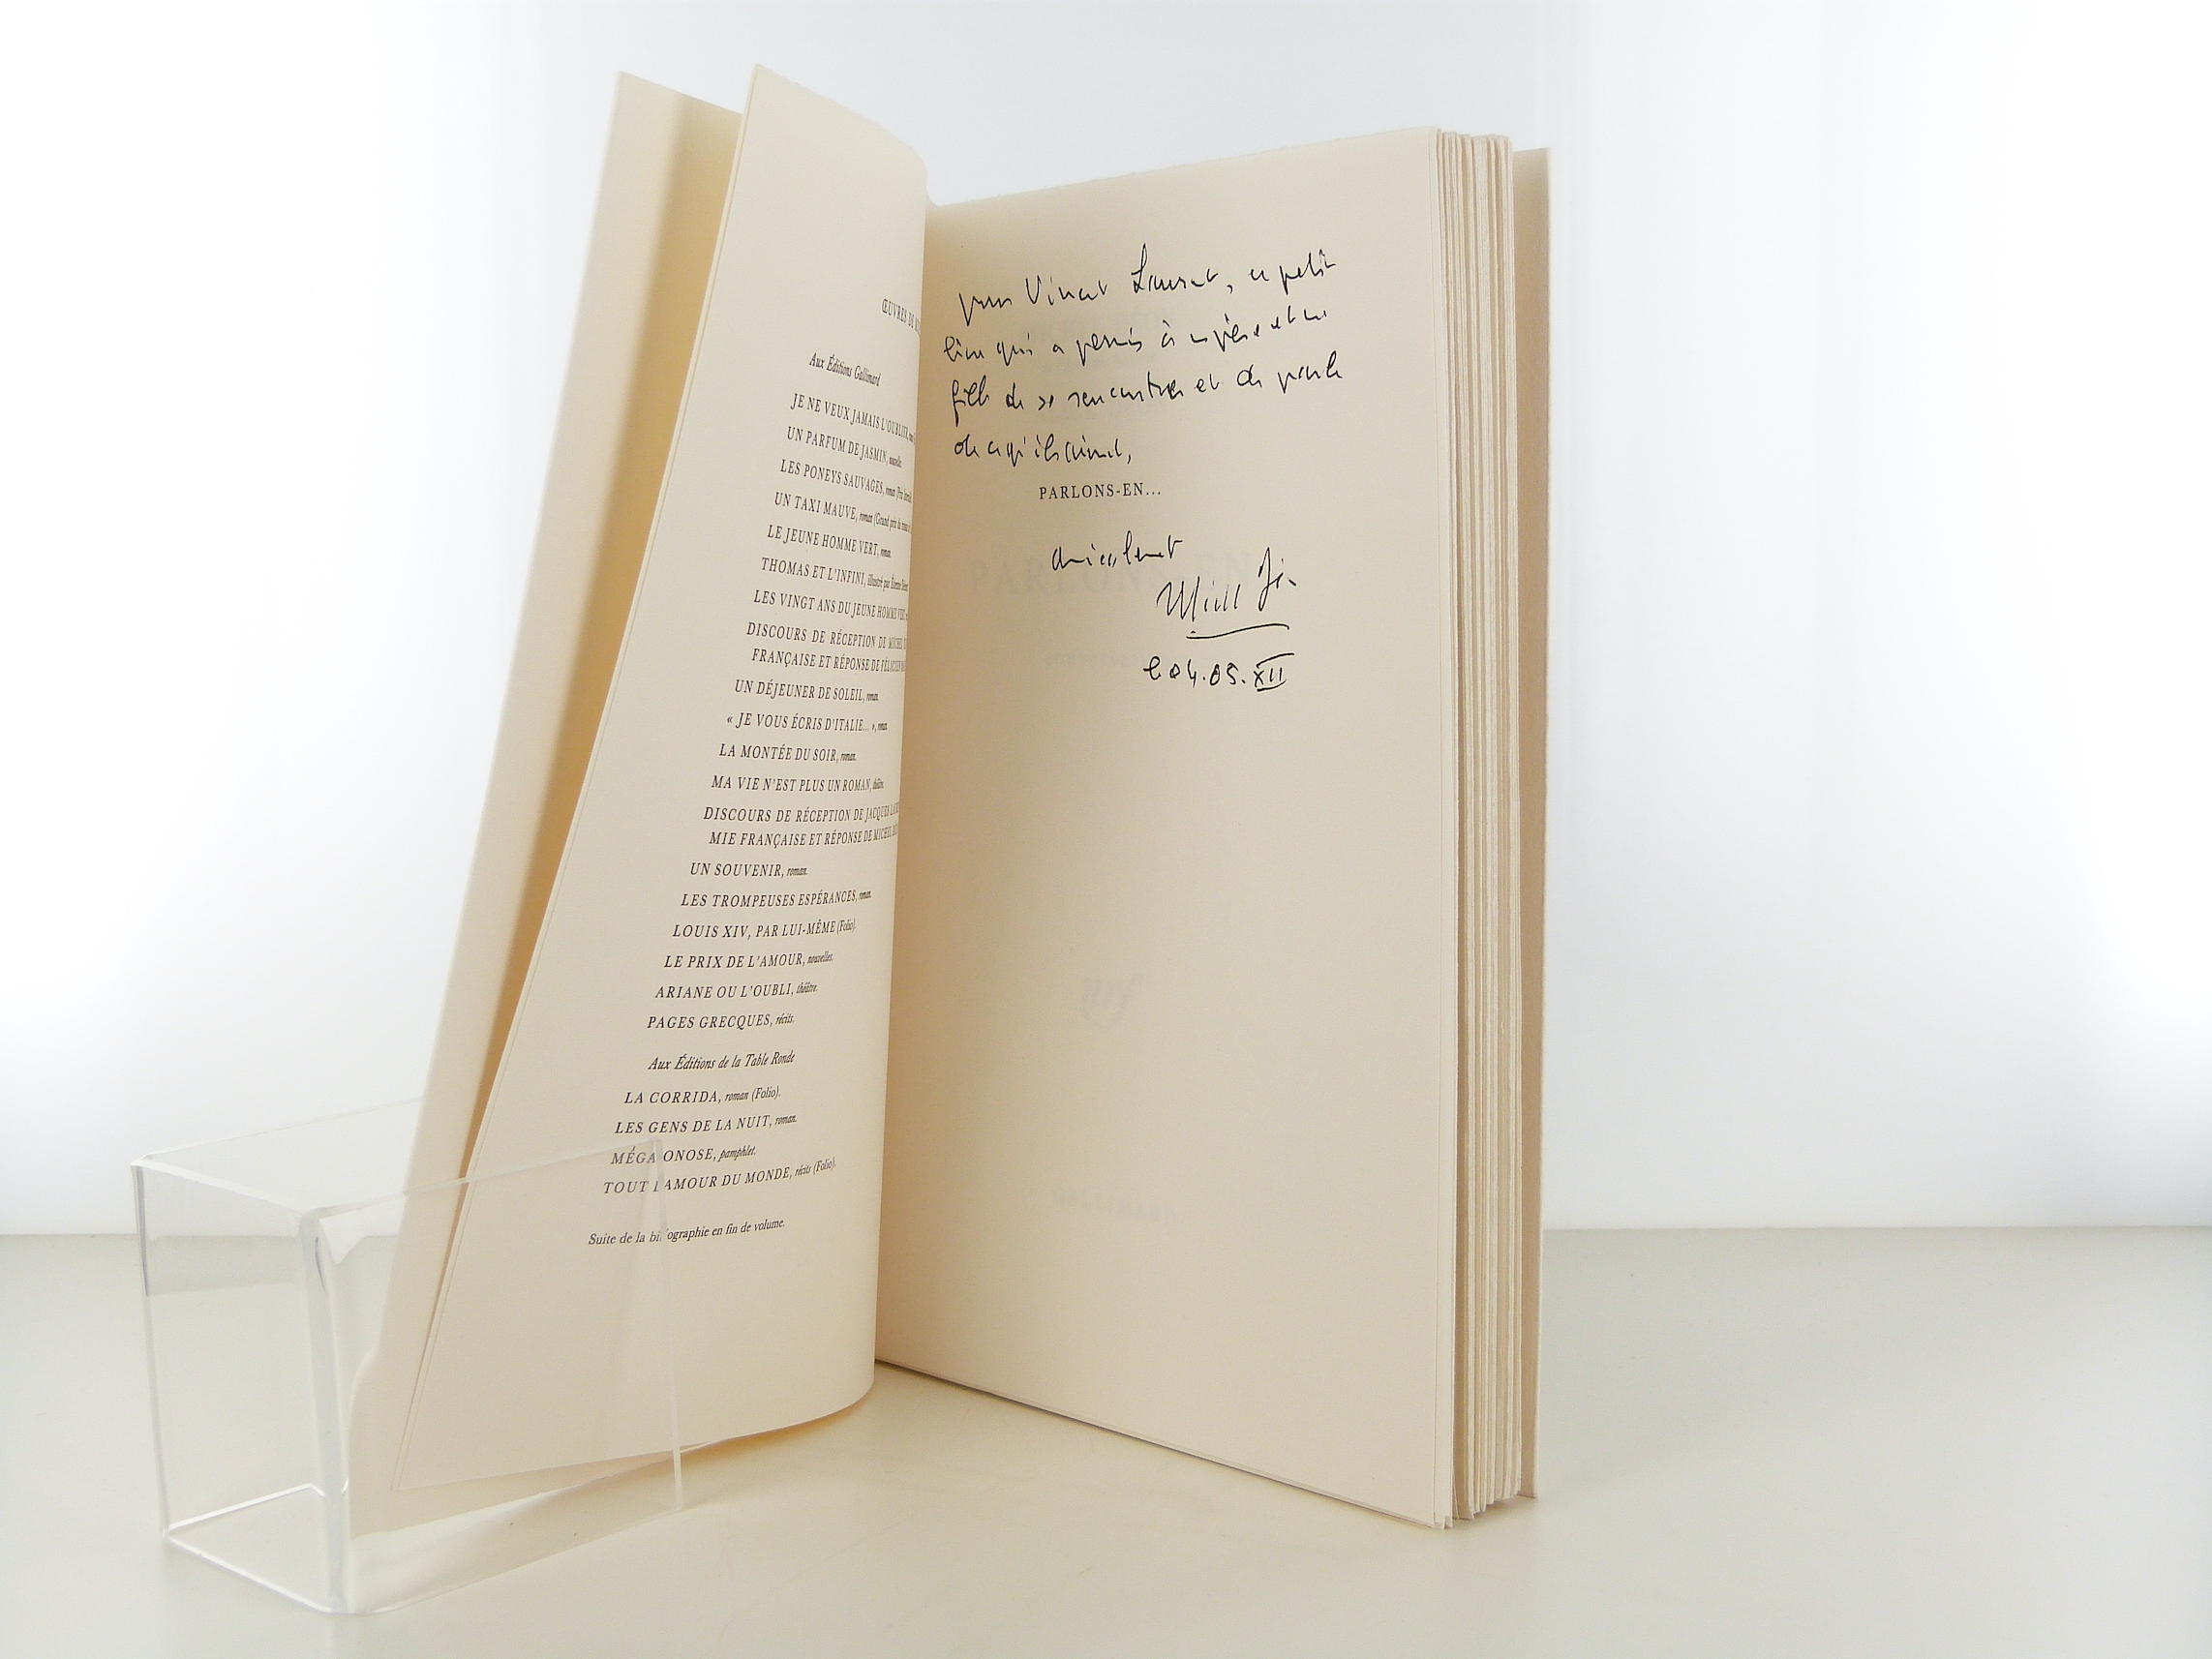 ŒUVRES DE
Aux Éditions Gallimard
JE NE VEUX JAMAIS L'OUBLIER,
UN PARFUM DE JASMIN, nouvelles.
LES PONEYS SAUVAGES, roman (Prix
UN TAXI MAUVE, roman (Grand prix du roman
LE JEUNE HOMME VERT, roman.
THOMAS ET L'INFINI, illustré par Étienne
LES VINGT ANS DU JEUNE HOMME VERT,
DISCOURS DE RÉCEPTION DE MICHEL
FRANÇAISE ET RÉPONSE DE FÉLICIEN
UN DÉJEUNER DE SOLEIL, roman.
« JE VOUS ÉCRIS D'ITALIE... », roman.
LA MONTÉE DU SOIR, roman.
MA VIE N'EST PLUS UN ROMAN, théâtre.
DISCOURS DE RÉCEPTION DE JACQUES
MIE FRANÇAISE ET RÉPONSE DE MICHEL
UN SOUVENIR, roman.
LES TROMPEUSES ESPÉRANCES, roman.
LOUIS XIV, PAR LUI-MÊME (Folio).
LE PRIX DE L'AMOUR, nouvelles.
ARIANE OU L'OUBLI, théâtre.
PAGES GRECQUES, récits.
Aux Éditions de la Table Ronde
LA CORRIDA, roman (Folio).
LES GENS DE LA NUIT, roman.
MÉGALONOSE, pamphlet.
TOUT L'AMOUR DU MONDE, récits (Folio).
Suite de la bibliographie en fin de volume.
pour Vincent Laurent, ce petit
livre qui a permis à un père et une
fille de se rencontrer et de parler
de ce qu'ils aiment,
PARLONS-EN...
amicalement
Michel Déon
le 04.05.XII
PARLONS-EN
nrf
GALLIMARD